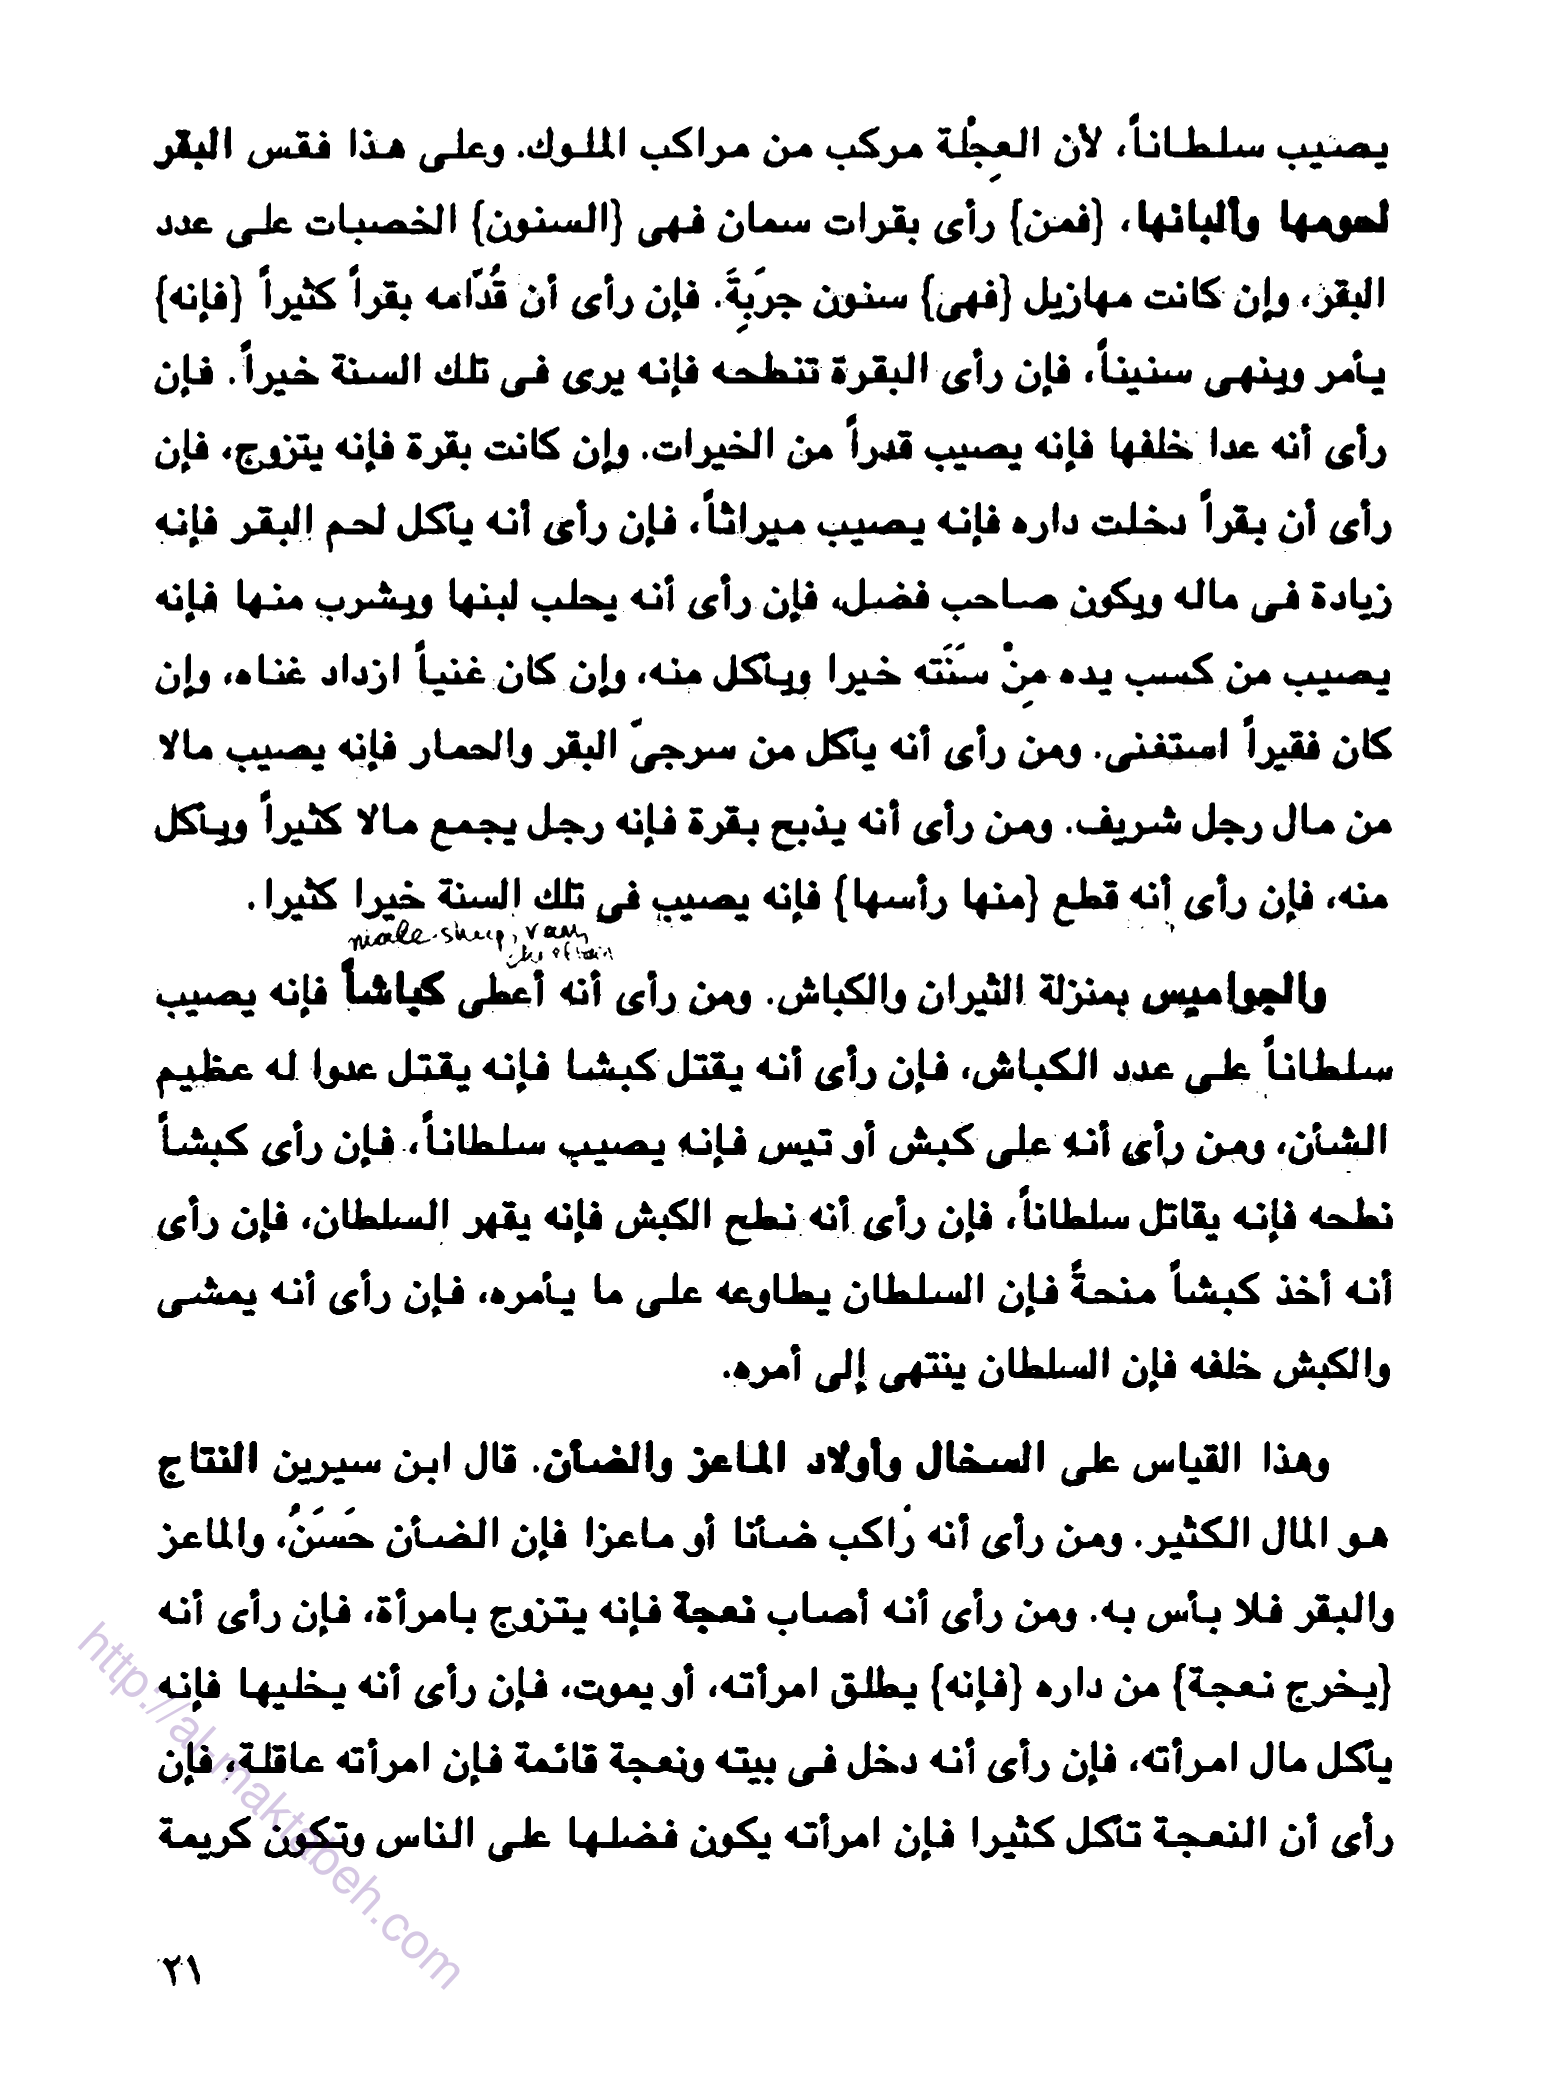 يصيب سلطاناً، لأن العِجْلة مركب من مراكب الملوك. وعلى هذا فقس البقر
لحومها وألبانها، {فمن} رأى بقرات سمان فهى {السنون} الخصبات على عدد
البقر، وإن كانت مهازيل {فهى} سنون جرَبِةً. فإن رأى أن قُدّامه بقراً كثيراً {فإنه}
يأمر وينهى سنيناً، فإن رأى البقرة تنطحه فإنه يرى فى تلك السنة خيراً. فإن
رأى أنه عدا خلفها فإنه يصيب قدراً من الخيرات. وإن كانت بقرة فإنه يتزوج، فإن
رأى أن بقراً دخلت داره فإنه يصيب ميراثاً، فإن رأى أنه يأكل لحم البقر فإنه
زيادة فى ماله ويكون صاحب فضل، فإن رأى أنه يحلب لبنها ويشرب منها فإنه
يصيب من كسب يده مِنْ سَنَته خيرا ويأكل منه، وإن كان غنياً ازداد غناه، وإن
كان فقيراً استغنى. ومن رأى أنه يأكل من سرجىّ البقر والحمار فإنه يصيب مالا
من مال رجل شريف. ومن رأى أنه يذبح بقرة فإنه رجل يجمع مالا كثيراً ويأكل
منه، فإن رأى أنه قطع {منها رأسها} فإنه يصيب فى تلك السنة خيرا كثيرا.
male sheep, ram,
chieftain
والجواميس بمنزلة الثيران والكباش. ومن رأى أنه أعطى كباشاً فإنه يصيب
سلطاناً على عدد الكباش، فإن رأى أنه يقتل كبشا فإنه يقتل عدوا له عظيم
الشأن، ومن رأى أنه على كبش أو تيس فإنه يصيب سلطاناً، فإن رأى كبشاً
نطحه فإنه يقاتل سلطاناً، فإن رأى أنه نطح الكبش فإنه يقهر السلطان، فإن رأى
أنه أخذ كبشاً منحةً فإن السلطان يطاوعه على ما يأمره، فإن رأى أنه يمشى
والكبش خلفه فإن السلطان ينتهى إلى أمره.
وهذا القياس على السخال وأولاد الماعز والضأن. قال ابن سيرين النتاج
هو المال الكثير. ومن رأى أنه رَاكب ضأنا أو ماعزا فإن الضأن حَسَنُ، والماعز
والبقر فلا بأس به. ومن رأى أنه أصاب نعجة فإنه يتزوج بامرأة، فإن رأى أنه
{يخرج نعجة} من داره {فإنه} يطلق امرأته، أو يموت، فإن رأى أنه يخليها فإنه
يأكل مال امرأته، فإن رأى أنه دخل فى بيته ونعجة قائمة فإن امرأته عاقلة، فإن
رأى أن النعجة تأكل كثيرا فإن امرأته يكون فضلها على الناس وتكون كريمة
http://al-maktabeh.com
٢١